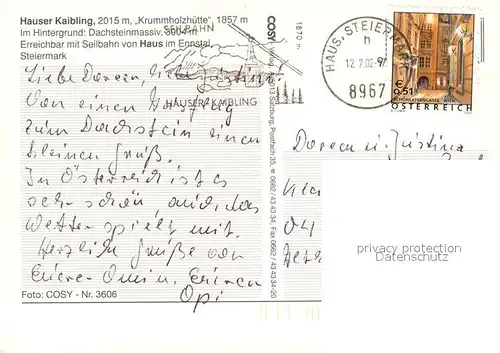 Hauser Kaibling, 2015 m, „Krummholzhütte", 1857 m
Im Hintergrund: Dachsteinmassiv, 3004 m
Erreichbar mit Seilbahn von Haus im Ennstal
Steiermark
SEILBAHN
HAUSER KAIBLING
1870 m
COSY Verlag, 5013 Salzburg, Postfach 35, 0662/43 43 34, Fax 0662/43 43 34-20
HAUS, STEIERMARK
h
12.7.02-17
8967
€ 0,51
SCHÖNLATERNGASSE, WIEN
ÖSTERREICH
Liebe Doreen, liebe Justina
Von einem Ausflug
zum Dachstein einen
kleinen Gruß.
In Österreich ist es
sehr schön und das
Wetter spielt mit.
Herzliche Grüße von
Eurer Omi u. Eurem
Opi
Doreen u. Justina
04
privacy protection
Datenschutz
Foto: COSY - Nr. 3606